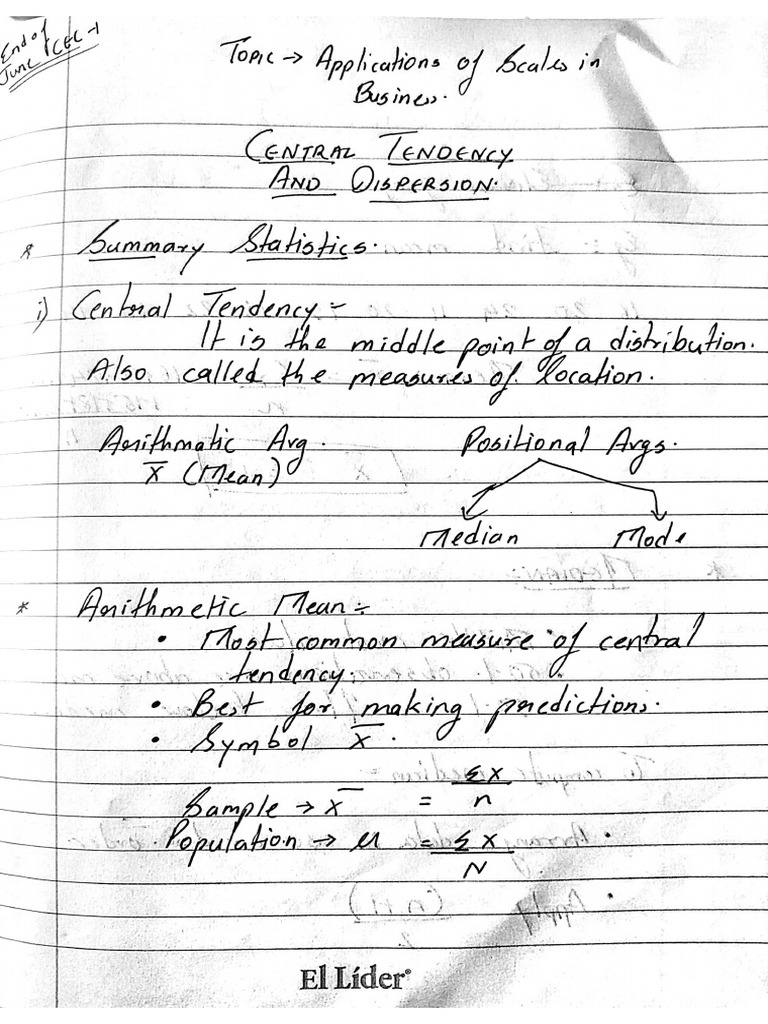 End of
June CEC-1
Topic → Applications of Scales in
Business.
CENTRAL TENDENCY
AND DISPERSION.
* Summary Statistics.
i) Central Tendency :-
It is the middle point of a distribution.
Also called the measures of location.
Arithmatic Avg. Positional Avgs.
x̄ (Mean)
Median Mode
* Arithmetic Mean :-
• Most common measure of central
tendency.
• Best for making predictions.
• Symbol x̄.
Sample → x̄ = Σx/n
Population → μ = Σx/N
El Líder®